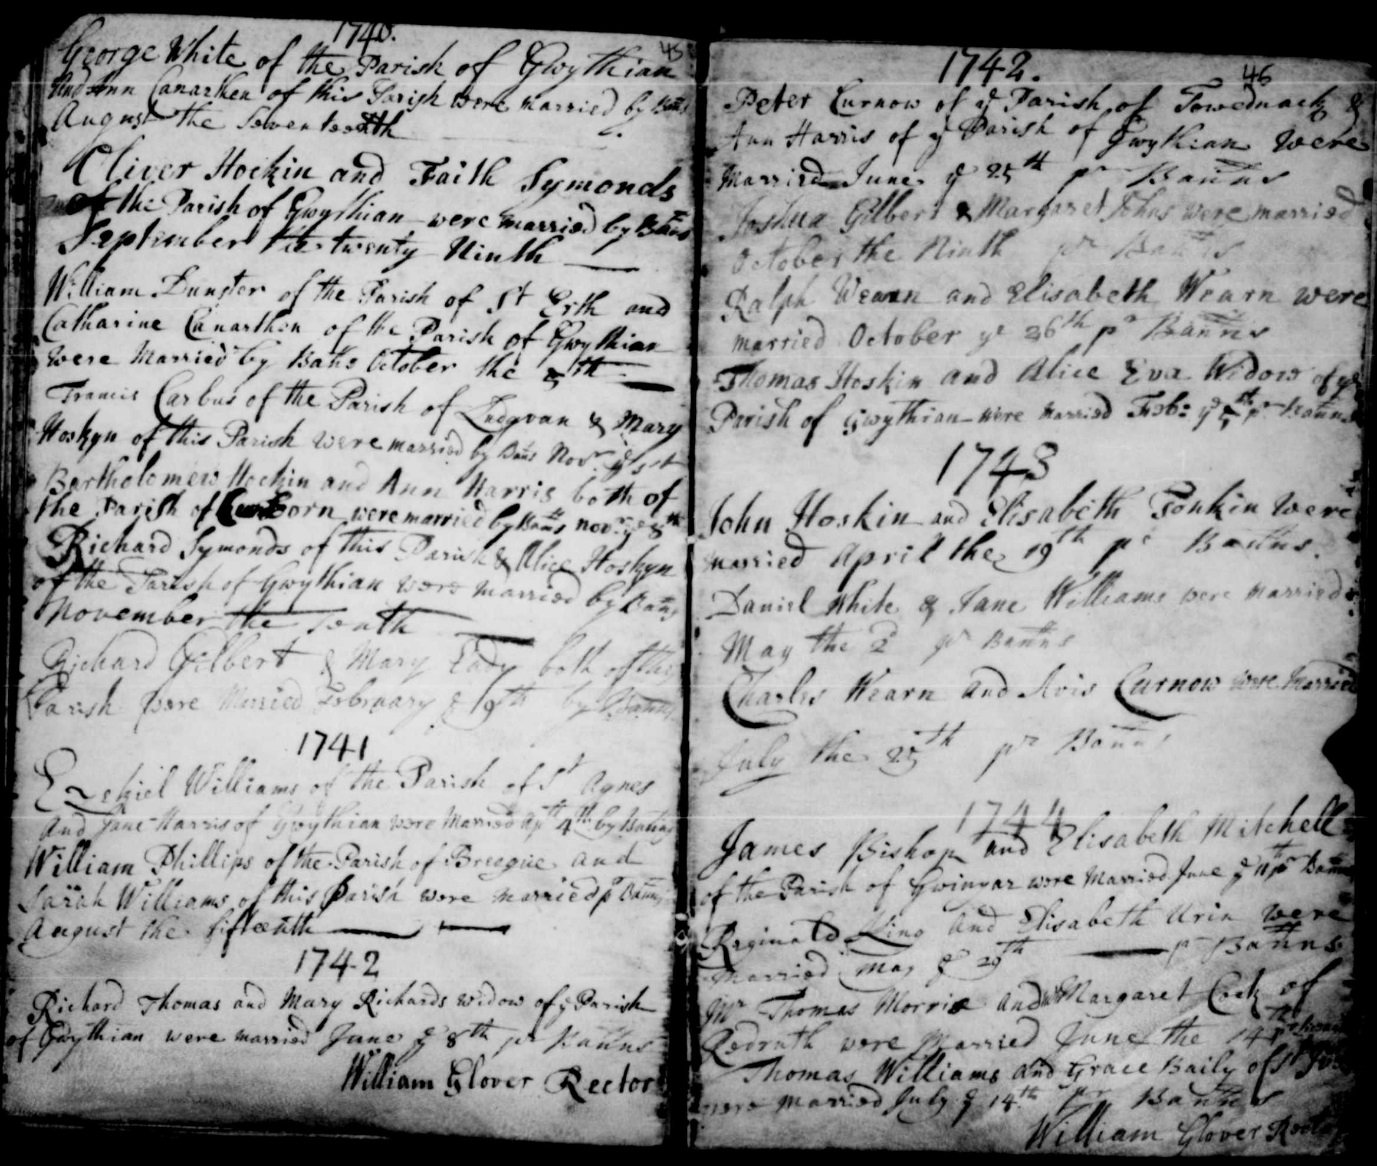 1740.
45
George White of the Parish of Gwythian
And Ann Canarthen of this Parish were married by Banns
August the Seventeenth
Oliver Hockin and Faith Symonds
of the Parish of Gwythian were married by Banns
September the twenty Ninth
William Dunster of the Parish of St Erth and
Catharine Canarthen of the Parish of Gwythian
were Married by Banns October the 5th
Francis Carbus of the Parish of Ludgvan & Mary
Hoskyn of this Parish were married by Banns Novr. ye 1st
Bartholomew Hockin and Ann Harris both of
the Parish of Camborn were married by Banns novr. ye 8th
Richard Symonds of this Parish & Alice Hoskyn
of the Parish of Gwythian were married by Banns
November the Tenth
Richard Gilbert & Mary Eady both of this
Parish were Married February ye 9th by Banns
1741
Ezekiel Williams of the Parish of St Agnes
and Jane Harris of Gwythian were Married Ap 4th by Banns
William Phillips of the Parish of Breague and
Sarah Williams of this Parish were married pr Banns
August the fifteenth
1742
Richard Thomas and Mary Richards Widow of ye Parish
of Gwythian were married June ye 8th pr Banns
William Glover Rector
1742.
46
Peter Curnow of ye Parish of Towednack &
Ann Harris of ye Parish of Gwythian were
Married June ye 25th pr Banns
Joshua Gilbert & Margaret Johns were married
October the Ninth pr Banns
Ralph Wearn and Elisabeth Wearn were
married October ye 26th pr Banns
Thomas Hoskin and Alice Eva Widow of ye
Parish of Gwythian were married Feb: ye 5th pr Banns
1743
John Hoskin and Elisabeth Tonkin were
married April the 19th pr Banns.
Daniel White & Jane Williams were married
May the 2d pr Banns
Charles Wearn and Avis Curnow were Married
July the 25th pr Banns
1744
James Bishop and Elisabeth Mitchell
of the Parish of Gwinear were Married June ye pr Banns
Reginald King and Elisabeth Urin were
married May ye 29th pr Banns
Mr Thomas Morris and Margaret Cock of
Redruth were Married June the 14th
Thomas Williams and Grace Baily of St
were married July ye 14th pr Banns
William Glover Rector